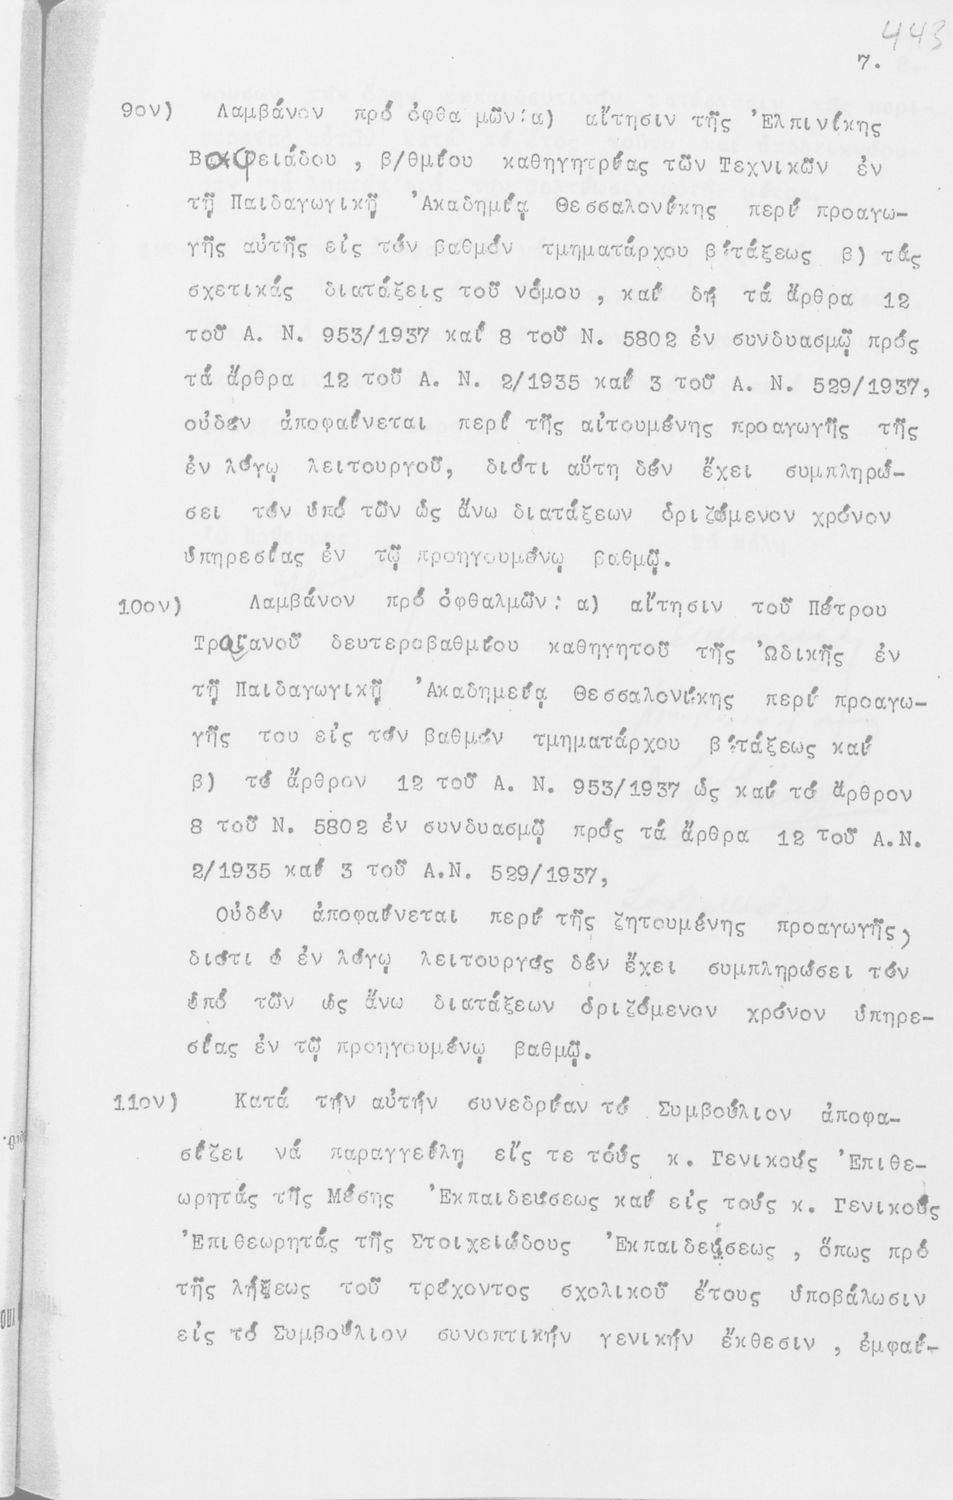 443
7.
9ον) Λαμβάνον πρό ὀφθα μῶν:α) αἴτησιν τῆς Ἑλπινίκης
Βαφειάδου , β/θμίου καθηγητρίας τῶν Τεχνικῶν ἐν
τῇ Παιδαγωγικῇ Ἀκαδημίᾳ Θεσσαλονίκης περί προαγω-
γῆς αὐτῆς εἰς τόν βαθμόν τμηματάρχου β΄τάξεως β) τάς
σχετικάς διατάξεις τοῦ νόμου , καί δή τά ἄρθρα 12
τοῦ Α. Ν. 953/1937 καί 8 τοῦ Ν. 5802 ἐν συνδυασμῷ πρός
τά ἄρθρα 12 τοῦ Α. Ν. 2/1935 καί 3 τοῦ Α. Ν. 529/1937,
οὐδέν ἀποφαίνεται περί τῆς αἰτουμένης προαγωγῆς τῆς
ἐν λόγῳ λειτουργοῦ, διότι αὕτη δέν ἔχει συμπληρώ-
σει τόν ὑπό τῶν ὡς ἄνω διατάξεων ὁριζόμενον χρόνον
ὑπηρεσίας ἐν τῷ προηγουμένῳ βαθμῷ.
10ον) Λαμβάνον πρό ὀφθαλμῶν: α) αἴτησιν τοῦ Πέτρου
Τραϊανοῦ δευτεροβαθμίου καθηγητοῦ τῆς Ὠδικῆς ἐν
τῇ Παιδαγωγικῇ Ἀκαδημείᾳ Θεσσαλονίκης περί προαγω-
γῆς του εἰς τόν βαθμόν τμηματάρχου β΄τάξεως καί
β) τό ἄρθρον 12 τοῦ Α. Ν. 953/1937 ὡς καί τό ἄρθρον
8 τοῦ Ν. 5802 ἐν συνδυασμῷ πρός τά ἄρθρα 12 τοῦ Α.Ν.
2/1935 καί 3 τοῦ Α.Ν. 529/1937,
Οὐδέν ἀποφαίνεται περί τῆς ζητουμένης προαγωγῆς,
διότι ὁ ἐν λόγῳ λειτουργός δέν ἔχει συμπληρώσει τόν
ὑπό τῶν ὡς ἄνω διατάξεων ὁριζόμενον χρόνον ὑπηρε-
σίας ἐν τῷ προηγουμένῳ βαθμῷ.
11ον) Κατά τήν αὐτήν συνεδρίαν τό Συμβούλιον ἀποφα-
σίζει νά παραγγείλῃ εἴς τε τούς κ. Γενικούς Ἐπιθε-
ωρητάς τῆς Μέσης Ἐκπαιδεύσεως καί εἰς τούς κ. Γενικούς
Ἐπιθεωρητάς τῆς Στοιχειώδους Ἐκπαιδεύσεως , ὅπως πρό
τῆς λήξεως τοῦ τρέχοντος σχολικοῦ ἔτους ὑποβάλωσιν
εἰς τό Συμβούλιον συνοπτικήν γενικήν ἔκθεσιν , ἐμφαί-